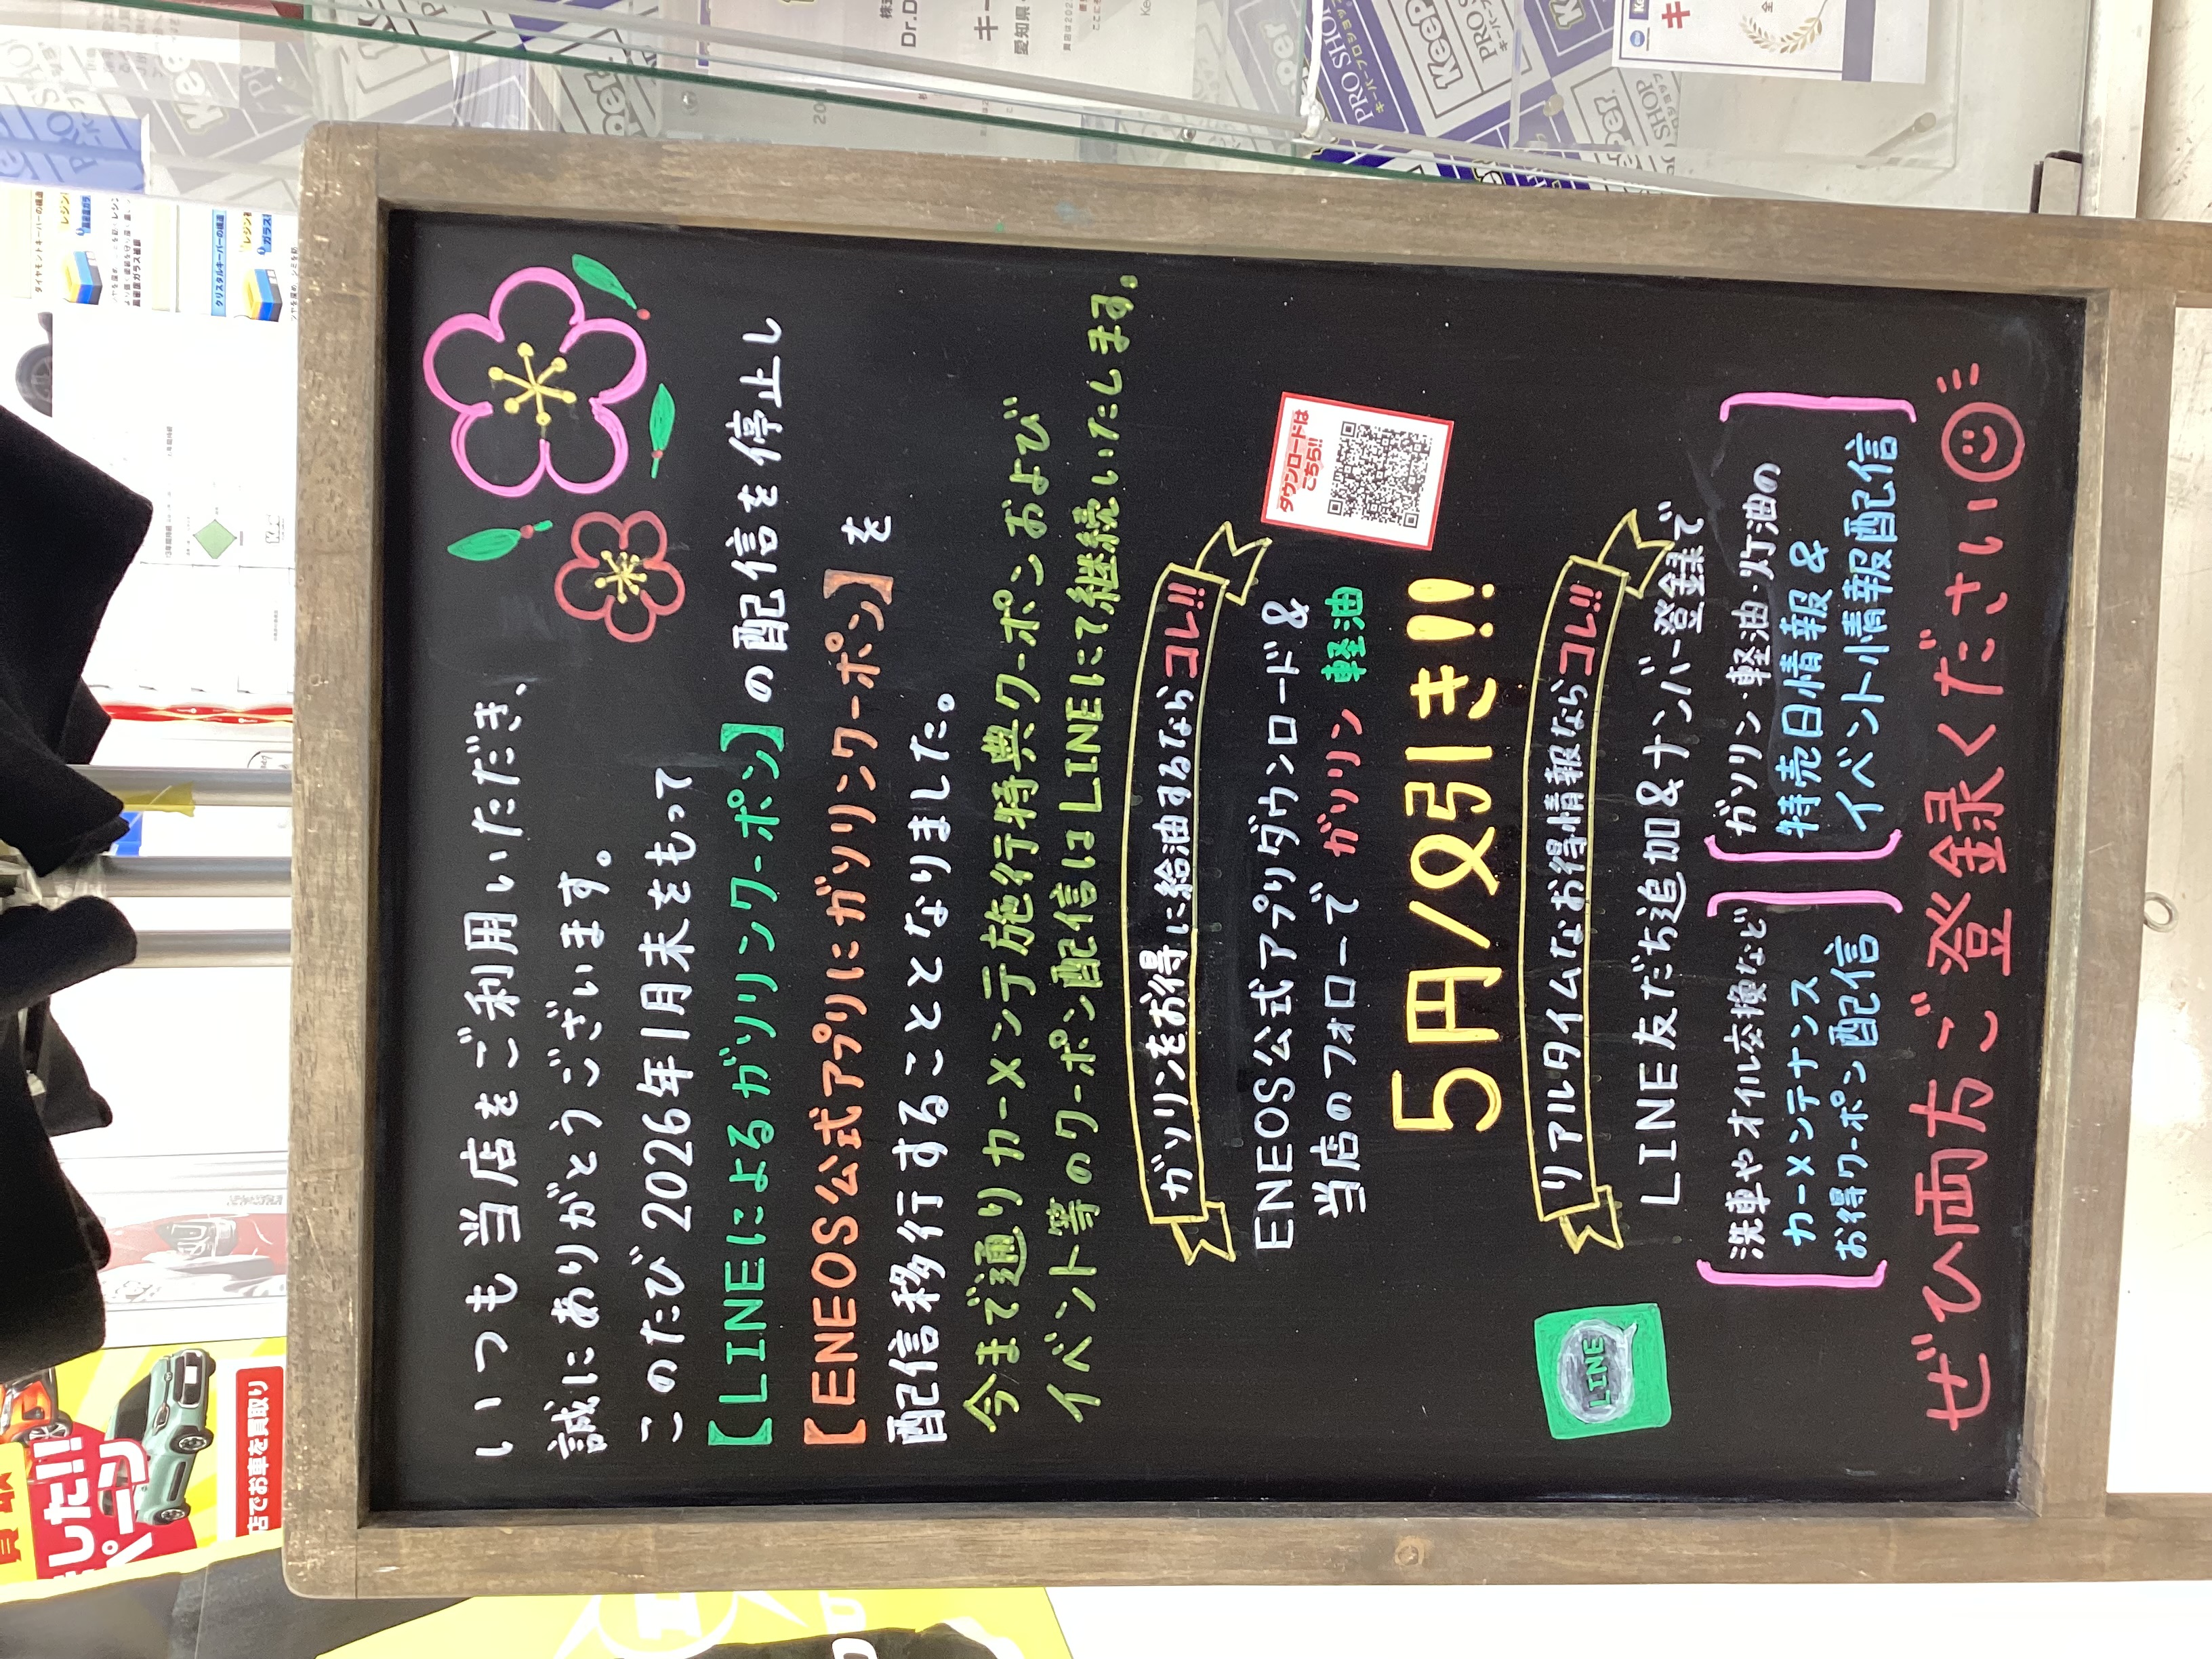 いつも当店をご利用いただき、
誠にありがとうございます。
このたび2026年1月末をもって
【LINEによるガソリンクーポン】の配信を停止し
【ENEOS公式アプリにガソリンクーポン】を
配信移行することとなりました。
今まで通りカーメンテ施行特典クーポンおよび
イベント等のクーポン配信はLINEにて継続いたします。
ガソリンをお得に給油するならコレ!!
ENEOS公式アプリダウンロード&
当店のフォローで ガソリン 軽油
ダウンロードは
こちら!!
5円/ℓ引き!!
リアルタイムなお得情報ならコレ!!
LINE友だち追加&ナンバー登録で
LINE
洗車やオイル交換など
カーメンテナンス
お得クーポン配信
ガソリン・軽油・灯油の
特売日情報&
イベント情報配信
ぜひ両方ご登録ください
KeePer
PRO SHOP
キーパープロショップ
ダイヤモンドキーパーの構造
クリスタルキーパーの構造
店でお車を買取り